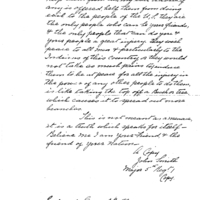 any is offered help them from being
said to the people of the U.S. they are
the only people who can be your friends,
& the only people that can do you &
your people a great injury. They wish
peace to all men & particularly to the
Indians of this country & they would
not take so much pains to make
them be at peace for all the injury in
the power of any other people to do them,
is like taking the top off a
which causes it to spread out more
branches
This is not meant as a menace,
it is a truth which speaks for itself—
Believe me I am your Friend & the
friend of your Nation.
A Copy
John Smith
Major 5th Reg't
Copy